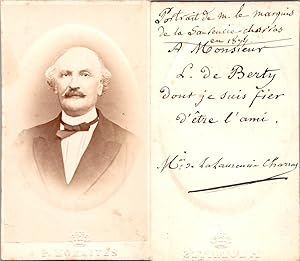 Portrait de m. le marquis
de la Laurencie-charras
en 1874
A Monsieur
L. de Berty
dont je suis fier
d'être l'ami.
Mis de la Laurencie Charras